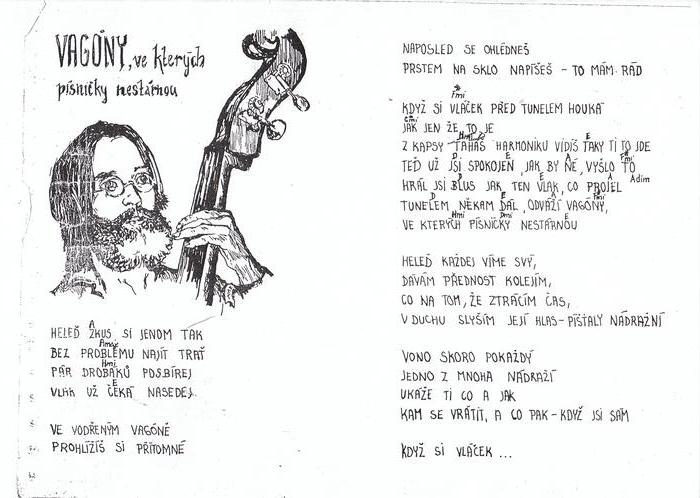 VAGÓNY, ve kterých
písničky nestárnou
HELEĎ ZKUS SI JENOM TAK
A
BEZ PROBLÉMU NAJÍT TRAŤ
Amaj
PÁR DROBÁKŮ POSBÍREJ
Hmi
VLAK UŽ ČEKÁ NASEDEJ
E
VE VODŘENÝM VAGÓNĚ
PROHLÍŽÍŠ SI PŘÍTOMNĚ
NAPOSLED SE OHLÉDNEŠ
PRSTEM NA SKLO NAPÍŠEŠ - TO MÁM RÁD
KDYŽ SI VLÁČEK PŘED TUNELEM HOUKÁ
Fmi
JAK JEN ŽE TO JE
Z KAPSY TAHÁŠ HARMONIKU VIDÍŠ TAKY TI TO JDE
E
TEĎ UŽ JSI SPOKOJEN, JAK BY NÉ, VYŠLO TO
D E A
HRÁL JSI BLUS JAK TEN VLAK, CO PROJEL
D E A Adim
TUNELEM NĚKAM DÁL, ODVÁŽÍ VAGÓNY,
D E
VE KTERÝCH PÍSNIČKY NESTÁRNOU
Hmi Dmi E
HELEĎ KAŽDEJ VÍME SVÝ,
DÁVÁM PŘEDNOST KOLEJÍM,
CO NA TOM, ŽE ZTRÁCÍM ČAS,
V DUCHU SLYŠÍM JEJÍ HLAS-PÍŠŤALY NÁDRAŽNÍ
VONO SKORO POKAŽDÝ
JEDNO Z MNOHA NÁDRAŽÍ
UKÁŽE TI CO A JAK
KAM SE VRÁTIT, A CO PAK - KDYŽ JSI SÁM
KDYŽ SI VLÁČEK ...